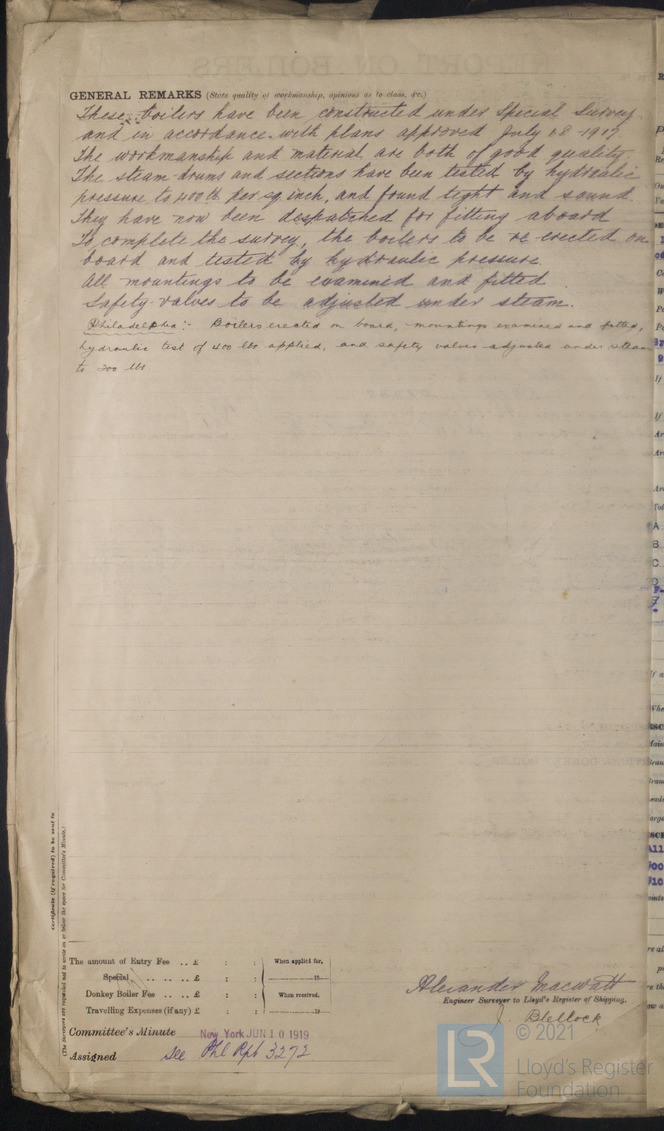 GENERAL REMARKS (State quality of workmanship, opinions as to class, &c.)
These boilers have been constructed under Special Survey
and in accordance with plans approved July 18 1917
The workmanship and material are both of good quality.
The steam drums and sections have been tested by hydraulic
pressure to 400 lb per sq. inch, and found tight and sound.
They have now been despatched for fitting aboard
To complete the survey, the boilers to be re erected on
board and tested by hydraulic pressure.
All mountings to be examined and fitted.
Safety valves to be adjusted under steam.
Philadelpha:- Boilers erected on board, mountings examined and fitted,
hydraulic test of 400 lbs applied, and safety valves adjusted under steam
to 200 lbs
Certificate (if required) to be sent to
(The Surveyors are requested not to write on or below the space for Committee's Minute.)
The amount of Entry Fee .. £ : : When applied for,
Special .. .. £ : : 19
Donkey Boiler Fee .. .. £ : : When received,
Travelling Expenses (if any) £ : : 19
Alexander Macwatt
Engineer Surveyor to Lloyd's Register of Shipping.
J. Blellock
Committee's Minute New York JUN 10 1919
Assigned See Phl Rpt 3272
LR
© 2021
Lloyd's Register
Foundation